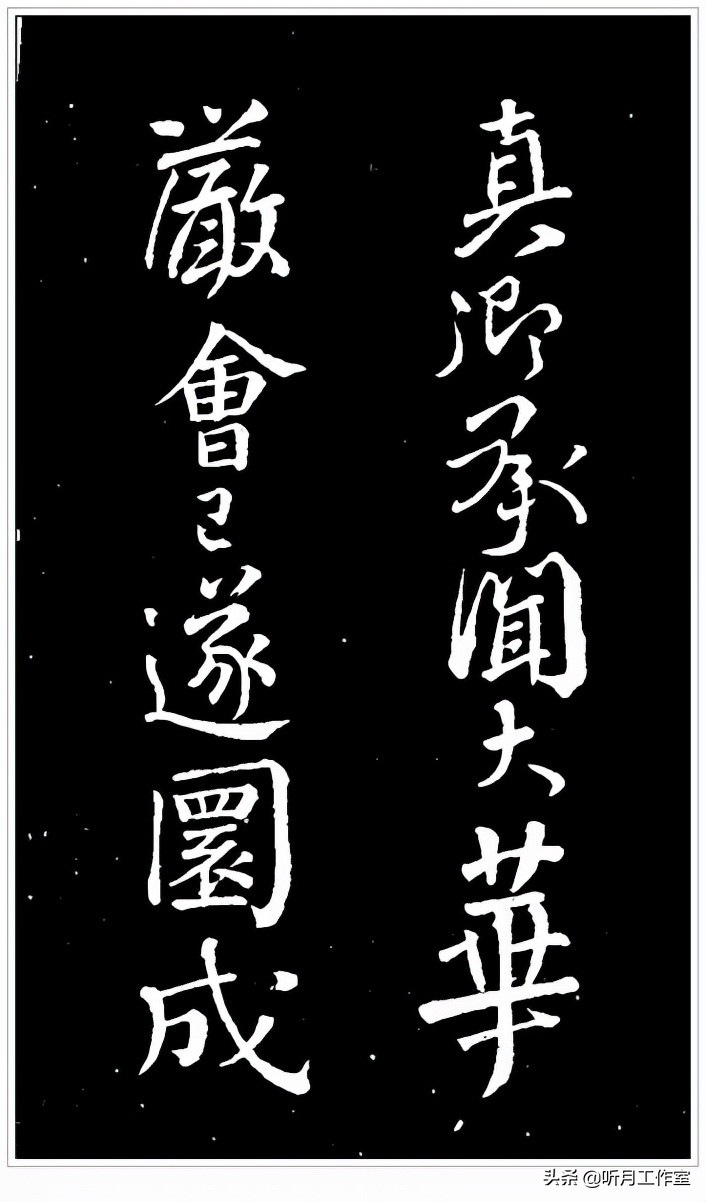 真卿承聞大華
嚴會已遂圓成
头条 @听月工作室